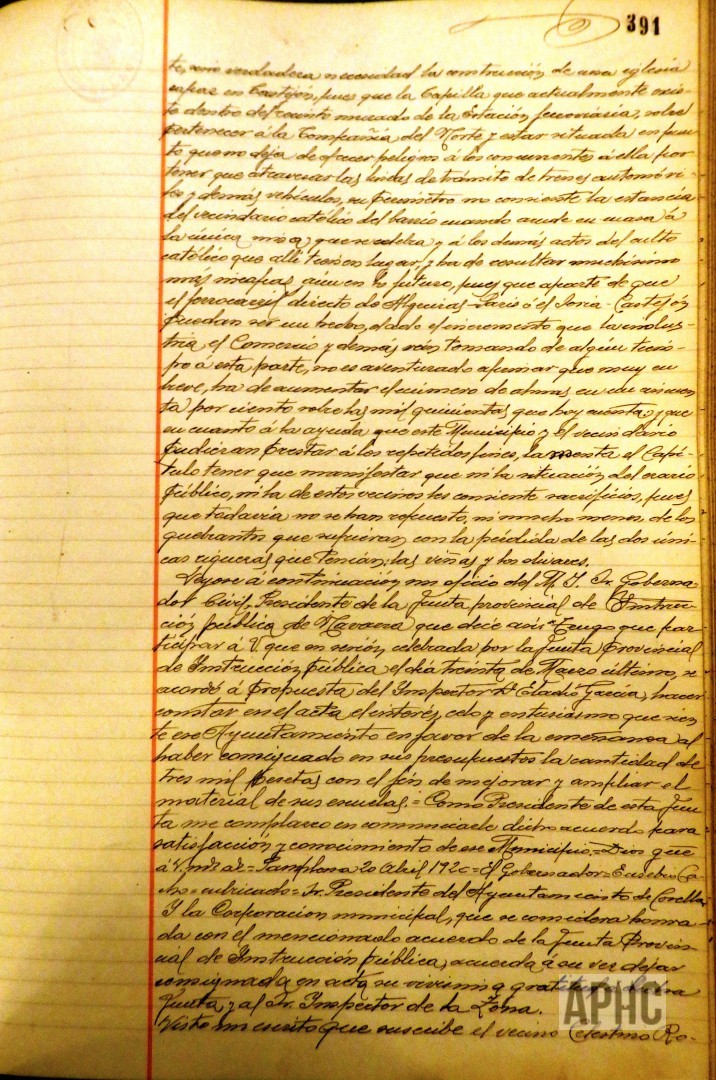 391
te, seria verdadera necesidad la construcción de una iglesia
capaz en Castejón, pues que la Capilla que actualmente exis-
te dentro del recinto murado de la Estación ferroviaria, sobre
pertenecer á la Compañía del Norte y estar situada en pun-
to que no deja de ofrecer peligro á los concurrentes á ella por
tener que atravesar las lineas de tránsito de trenes automóvi-
les y demás vehículos, su perímetro no consiente la estancia
del vecindario católico del barrio cuando acude en masa á
la única misa, que se celebra y á los demás actos del culto
católico que allí tienen lugar, y ha de resultar muchísimo
más incapaz aún en lo futuro, pues que aparte de que
el ferrocarril directo de Algeciras-Paris ó el Soria-Castejón
puedan ser un hecho, dado el incremento que la indus-
tria, el Comercio y demás ván tomando de algún tiem-
po á esta parte, no es aventurado afirmar que muy en
breve, ha de aumentar el número de almas en un cincuen-
ta por ciento sobre las mil quinientas que hoy cuenta; y que
en cuanto á la ayuda que este Municipio y el vecindario
pudieran prestar á los repetidos fines, lamenta el Capí-
tulo tener que manifestar que ni la situación del erario
público, ni la de estos vecinos les consiente sacrificios, pues
que todavía no se han repuesto, ni mucho menos, de los
quebrantos que sufrieran con la pérdida de las dos úni-
cas riquezas que tenían; las viñas y los olivares.
Leyóse á continuación un oficio del M. I. Sr. Goberna-
dor Civil, Presidente de la Junta provincial de Instruc-
ción pública de Navarra que dice así: "Tengo que par-
ticipar á V. que en sesión celebrada por la Junta Provincial
de Instrucción pública el día treinta de Marzo último, se
acordó á propuesta del Inspector Dn Eladio García, hacer
constar en el acta el interés, celo y entusiasmo que sien-
te ese Ayuntamiento en favor de la enseñanza al
haber consignado en sus presupuestos la cantidad de
tres mil pesetas con el fín de mejorar y ampliar el
material de sus escuelas. = Como Presidente de esta Jun-
ta me complazco en comunicarle dicho acuerdo para
satisfacción y conocimiento de ese Municipio. = Dios gue
á V. ms as = Pamplona 20 Abril 1920 = El Gobernador = Eusebio
= rubricado = Sr. Presidente del Ayuntamiento de Corella
Y la Corporación municipal, que se considera honra-
da con el mencionado acuerdo de la Junta Provin-
cial de Instrucción pública, acuerda á su vez dejar
consignada en acta su vivísima gratitud a dicha
Junta, y al Sr. Inspector de la Zona.
Visto un escrito que suscribe el vecino Celestino Ro-
APHC